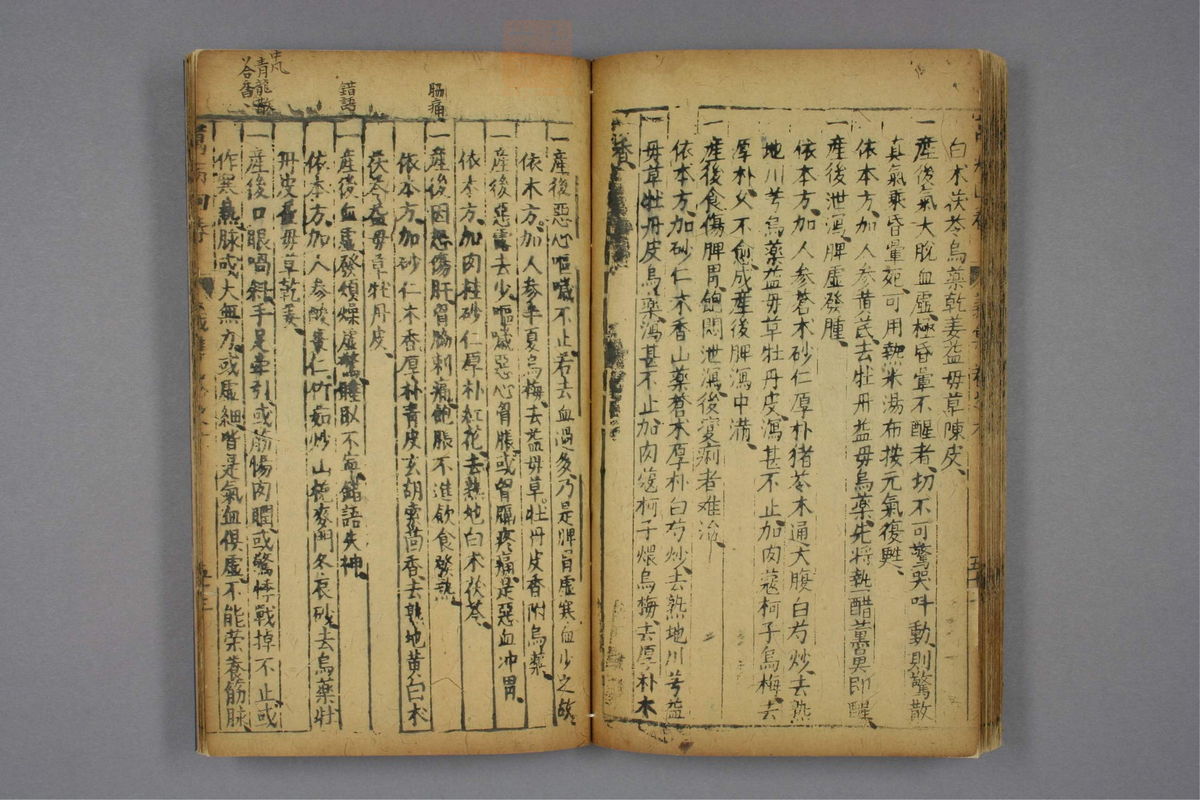 白朮茯苓烏藥乾姜益母草陳皮
一產後氣大脫血虛極昏暈不醒者切不可驚哭呌動則驚散
真氣乘昏暈死可用熱米湯布按元氣復甦
依本方加人參黃芪去牡丹益母烏藥先將熱醋薰鼻即醒
一產後泄瀉脾虛發腫
依本方加人參蒼朮砂仁厚朴猪苓木通大腹白芍炒去熟
地川芎烏藥益母草牡丹皮瀉甚不止加肉蔻柯子烏梅去
厚朴久不愈成產後脾瀉中滿
一產後食傷脾胃飽悶泄瀉後變痢者难治
依本方加砂仁木香山藥蒼朮厚朴白芍炒去熟地川芎益
母草牡丹皮烏藥瀉甚不止加肉蔻柯子煨烏梅去厚朴木
香
脇痛
錯語
中風
青龍散
合香
一產後惡心嘔噦不止若去血過多乃是脾胃虛寒血少之故
依本方加人參半夏烏梅去益母草牡丹皮香附烏藥
一產後惡露去少嘔噦惡心胃脹或胃膈疼痛是惡血冲胃
依本方加肉桂砂仁厚朴紅花去熟地白朮茯苓
一產後因怒傷肝胃脇刺痛飽脹不進飲食發熱
依本方加砂仁木香厚朴青皮玄胡索茴香去熟地黃白朮
茯苓益母草牡丹皮
一產後血虛發煩燥虛驚睡臥不寧錯語失神
依本方加人參酸棗仁竹茹炒山梔麥門冬辰砂去烏藥牡
丹皮益母草乾姜
一產後口眼喎斜手足牽引或筋惕肉瞤或驚悸戰掉不止或
作寒熱脉或大無力或虛細皆是氣血俱虛不能荣養筋脉
萬病回春
五十三